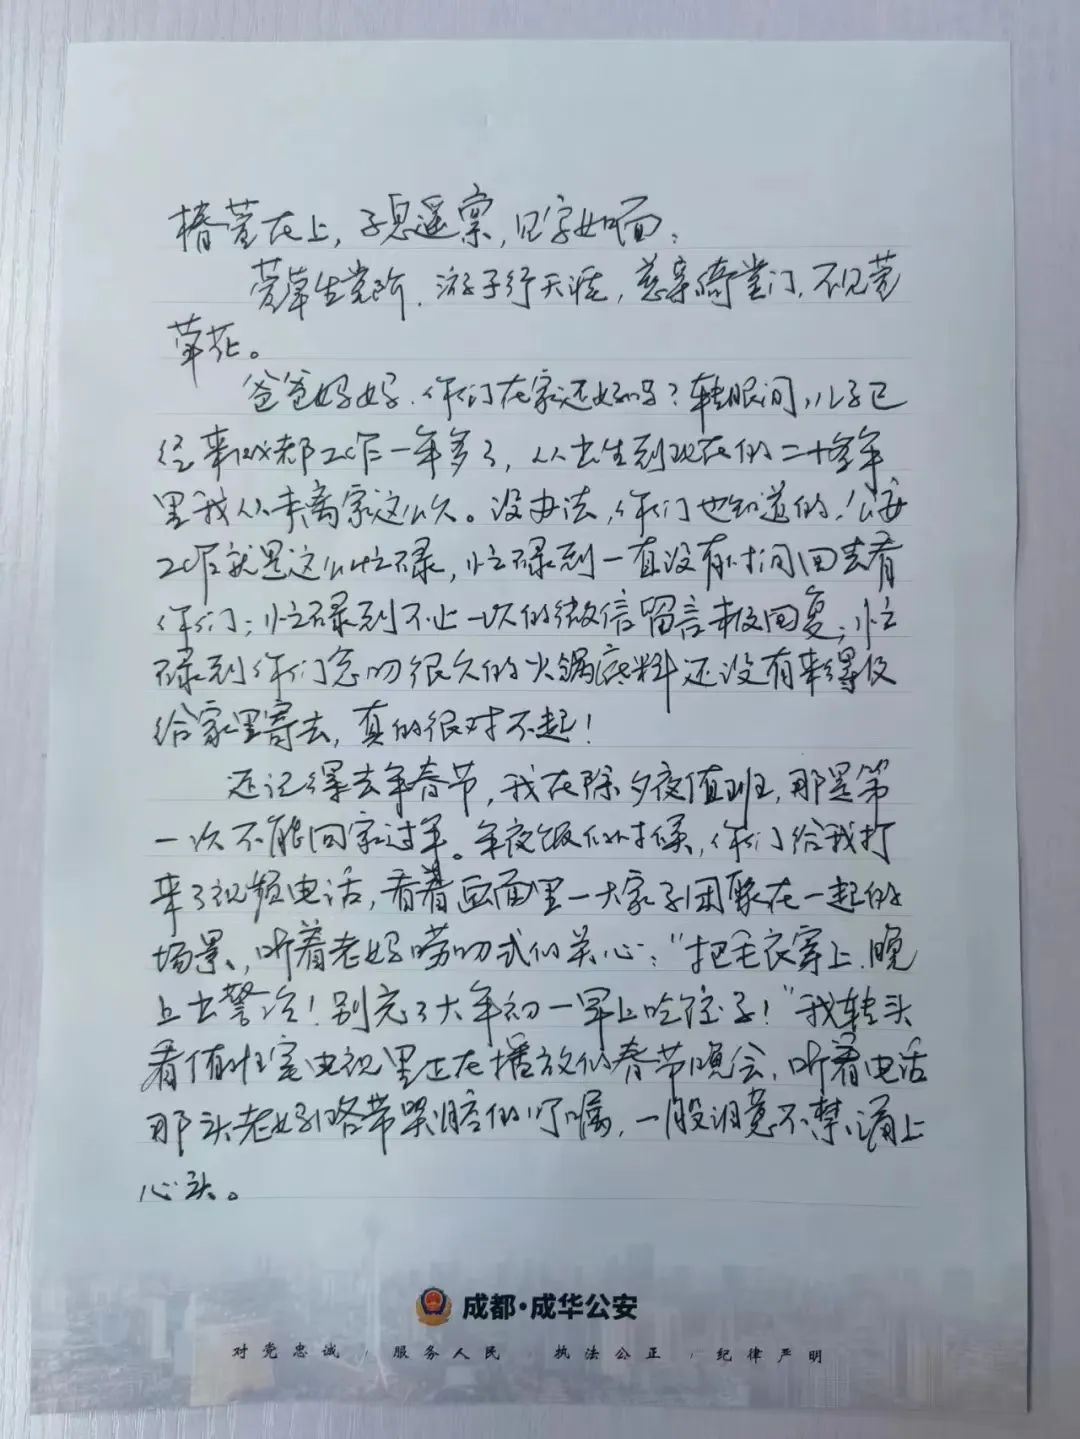 椿萱在上，子息遥禀，见字如面：
萱草生堂阶，游子行天涯，慈亲倚堂门，不见萱
草花。
爸爸妈妈，你们在家还好吗？转眼间，儿子已
经来成都工作一年多了，从出生到现在的二十多年
里我从未离家这么久。没办法，你们也知道的，公安
工作就是这么忙碌，忙碌到一直没有时间回去看
你们；忙碌到不止一次的微信留言未及回复；忙
碌到你们念叨很久的火锅底料还没有来得及
给家里寄去，真的很对不起！
还记得去年春节，我在除夕夜值班，那是第
一次不能回家过年。年夜饭的时候，你们给我打
来了视频电话，看着画面里一大家子团聚在一起的
场景，听着老妈唠叨式的关心：“把毛衣穿上，晚
上出警冷！别忘了大年初一早上吃饺子！”我转头
看值班室电视里正在播放的春节晚会，听着电话
那头老妈略带哭腔的叮嘱，一股泪意不禁涌上
心头。
成都·成华公安
对党忠诚 / 服务人民 / 执法公正 / 纪律严明